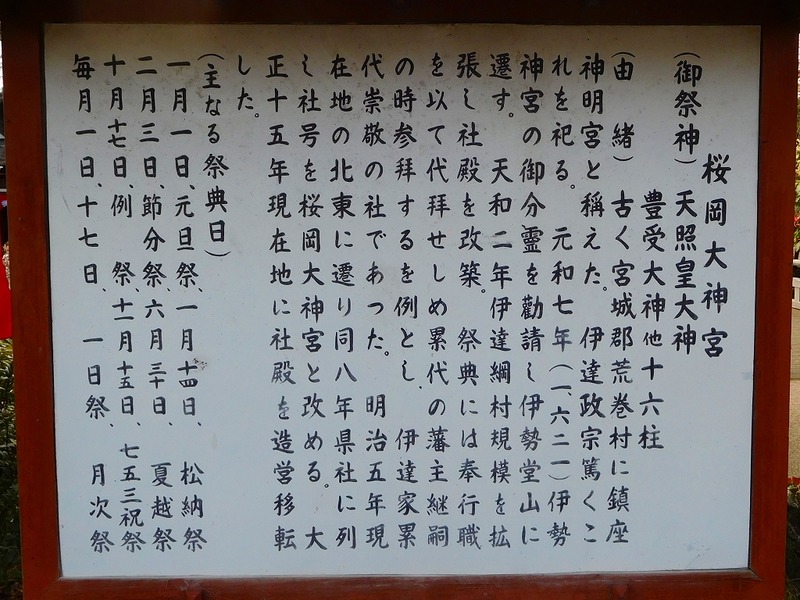 桜岡大神宮
(御祭神) 天照皇大神
豊受大神他十六柱
(由緒) 古く宮城郡荒巻村に鎮座
神明宮と稱えた。伊達政宗篤くこ
れを祀る。元和七年(一、六二一)伊勢
神宮の御分霊を勸請し伊勢堂山に
遷す。天和二年伊達綱村規模を拡
張し社殿を改築。祭典には奉行職
を以て代拜せしめ累代の藩主継嗣
の時参拜するを例とし、伊達家累
代崇敬の社であった。明治五年現
在地の北東に遷り同八年県社に列
し社号を桜岡大神宮と改める。大
正十五年現在地に社殿を造営移転
した。
(主なる祭典日)
一月一日、元旦祭、一月十四日、松納祭
二月三日、節分祭、六月三十日、夏越祭
十月十七日、例祭、十一月十五日、七五三祝祭
毎月一日、十七日、一日祭、月次祭